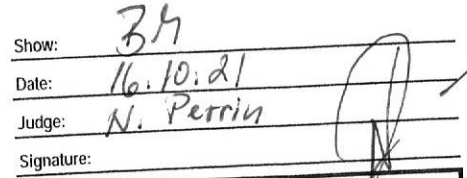 Show: BM
Date: 16.10.21
Judge: N. Perrin
Signature: